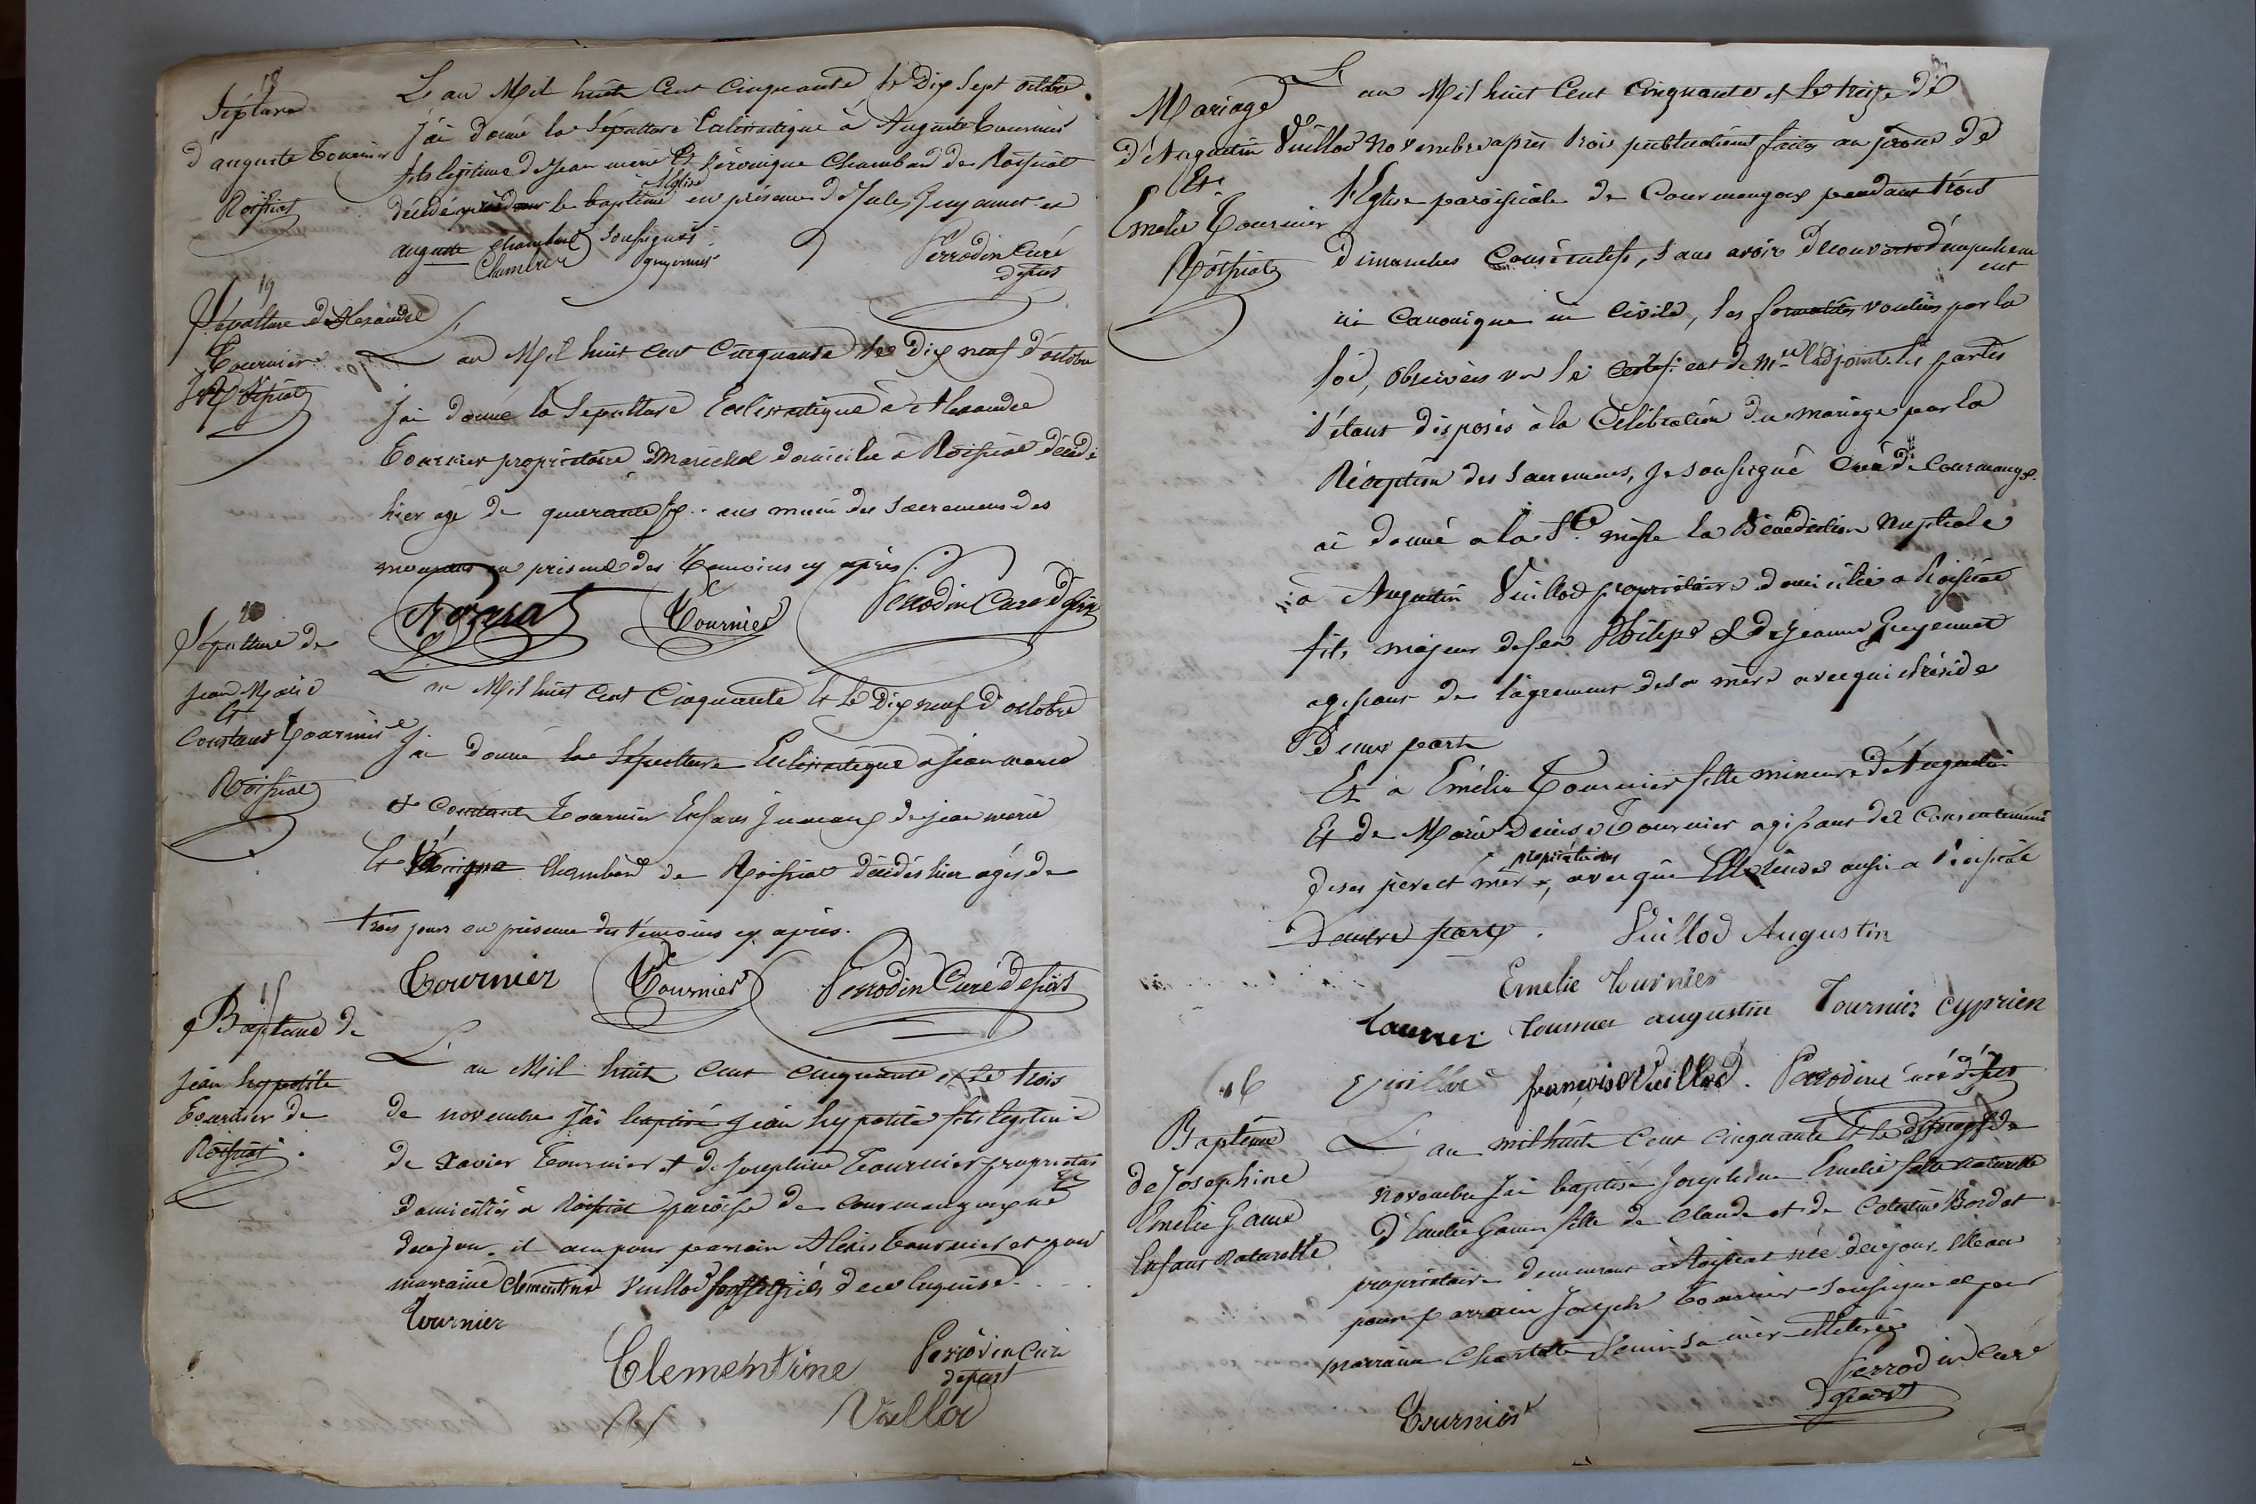 18
Sépulture
d'auguste Tournier
Roissiat
L'an Mil huit Cent Cinquante le Dix Sept octobre
j'ai donné la Sépulture Ecclésiastique à Auguste Tournier
fils légitime de Jean marie Et Véronique Chambard de Roissiat
l'Eglise
décédé le baptême en présence de Jules Guyennet et
auguste Chambard Soussignés
Chambard guyennet
Perrodin Curé
19
Sépulture d'Alexandre
Tournier
Roissiat
L'an Mil huit Cent Cinquante le Dix neuf d'octobre
j'ai donné la Sépulture Ecclésiastique à Alexandre
Tournier propriétaire Maréchal domicilié à Roissiat décédé
hier agé de quarante six ans muni des Sacremens des
mourans en présence des Témoins cy après.
Tournier Perrodin Curé
20
Sépulture de
Jean Marie
Et
Constant Tournier
Roissiat
L'an Mil huit Cent Cinquante Et le Dix neuf d'octobre
J'ai donné la Sépulture Ecclésiastique à Jean marie
et Constant Tournier Enfans Jumeaux de Jean marie
Et Véronique Chambard de Roissiat décédés hier agés de
trois jours en présence des témoins cy après.
Tournier Tournier Perrodin Curé
Baptême de
Jean hypolite
Tournier de
Roissiat
L'an Mil huit Cent Cinquante et le trois
de novembre j'ai baptisé Jean hypolite fils légitime
de Xavier Tournier et de Josephine Tournier propriétaires
domiciliés à Roissiat paroisse de Courmangoux né
de ce jour. il a eu pour parrain Alexis Tournier et pour
marraine Clementine Vuillod soussignés de ce enquise.
Tournier
Clementine Perrodin Curé
Vuillod
Mariage
d'Augustin Vuillod
Et
Emelie Tournier
Roissiat
L'an Mil huit Cent Cinquante et le treize de
Novembre après trois publications faites au prône de
l'Eglise paroissiale de Courmangoux pendant trois
dimanches Consécutifs, sans avoir découvert d'empechem
ent
ni Canonique ni Civile, les formalités voulues par la
loi, observées vu le certificat de Mr l'adjoint. les parties
s'étant disposés à la Célébration du mariage par la
Réception des Sacremens, je soussigné Curé de Courmangoux
ai donné a la Ste messe la Bénédiction Nuptiale
à Augustin Vuillod propriétaire domicilié a Roissiat
fils majeur de feu Philipe & de Jeanne Guyennet
agissant de l'agrement de sa mère avec qui il réside
D'une part
Et à Emélie Tournier fille mineure d'Augustin
Et de Marie Denise Tournier agissant del Consentement
propriétaires
de ses père et mère, avec qui Elle réside aussi a Roissiat
D'autre part. Vuillod Augustin
Emelie tournier
tournier tournier augustin Tournier cyprien
Vuillod françois Vuillod. Perrodin curé
16
Baptême
de Josephine
Emelie Game
Enfant Naturelle
L'an mil huit Cent cinquante Et le dix neuf de
novembre j'ai baptisé Josephine Emelie fille naturelle
d'Emelie Game fille de Claude et de Celestine Bordat
propriétaire demeurant à Roissiat née de ce jour. Elle a eu
pour parrain Joseph Tournier soussigné et pour
marraine Charlotte
Perrodin Curé
Tournier